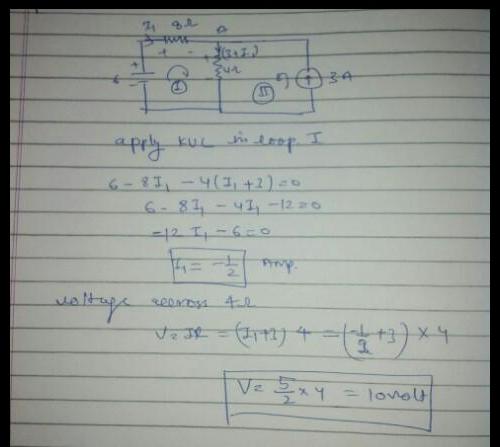 I₁ 8Ω A
+ - + (3+I₁)
6 + I 4Ω II 3A
apply KVL in loop I
6 - 8I₁ - 4(I₁+3)=0
6 - 8I₁ - 4I₁ -12=0
-12 I₁ -6=0
I₁ = -1/2 Amp.
voltage across 4Ω
V=IR = (I₁+3) 4 = (-1/2 +3) × 4
V= 5/2 × 4 = 10volt